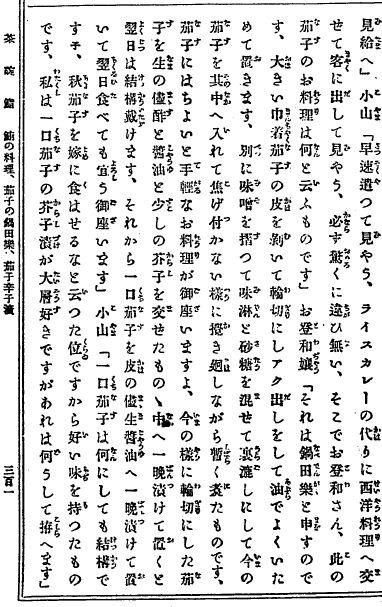 見給へ」小山「早速遣つて見やう、ライスカレーの代りに西洋料理へ交
せて客に出して見やう、必ず驚くに違ひ無い、そこでお登和さん、此の
茄子のお料理は何と云ふものです」お登和嬢「それは鍋田樂と申すので
す、大きい巾着茄子の皮を剥いて輪切にしアク出しをして油でよくいた
めて置きます、別に味噌を摺つて味淋と砂糖を混ぜて裏漉しにして今の
茄子を其中へ入れて焦げ付かない様に攪き廻しながら暫く煮たものです、
茄子にはちよいと手軽なお料理が御座いますよ、今の様に輪切にした茄
子を生の儘酢と醬油と少しの芥子を交せたものゝ中へ一晩漬けて置くと
翌日は結構戴けます、それから一口茄子を皮の儘生醬油へ一晩漬けて置
いて翌日食べても宜う御座います」小山「一口茄子は何にしても結構で
すネ、秋茄子を嫁に食はせるなと云つた位ですから好い味を持つたもの
です、私は一口茄子の芥子漬が大層好きですがあれは何うして拵へます」
茶碗鮨 鮨の料理、茄子の鍋田樂、茄子辛子漬
三百一